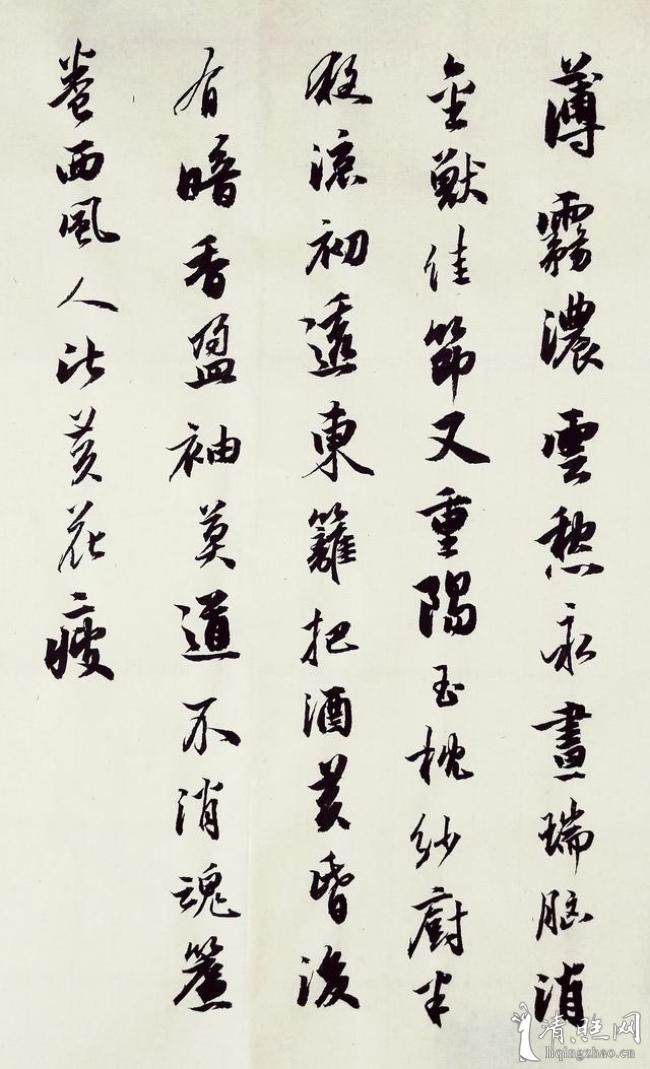 薄霧濃雲愁永晝瑞腦消
金獸佳節又重陽玉枕紗廚半
夜涼初透東籬把酒黃昏後
有暗香盈袖莫道不消魂簾
卷西風人比黃花瘦
清照网
liqingzhao.cn